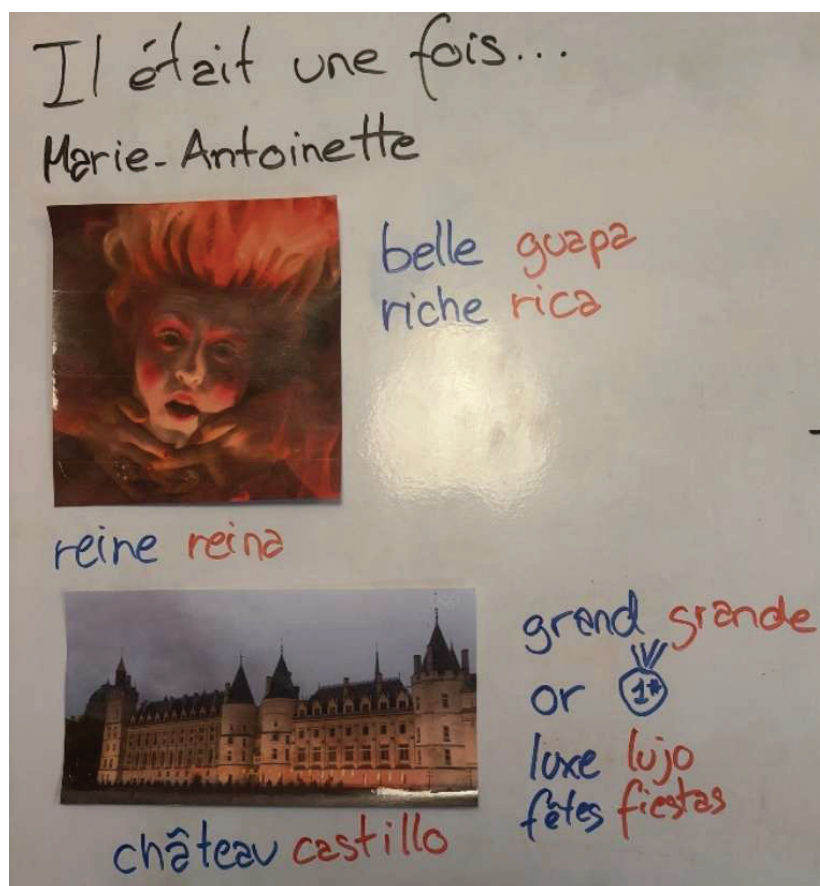 Il était une fois...
Marie-Antoinette
belle guapa
riche rica
reine reina
grand grande
or 1#
luxe lujo
fêtes fiestas
château castillo